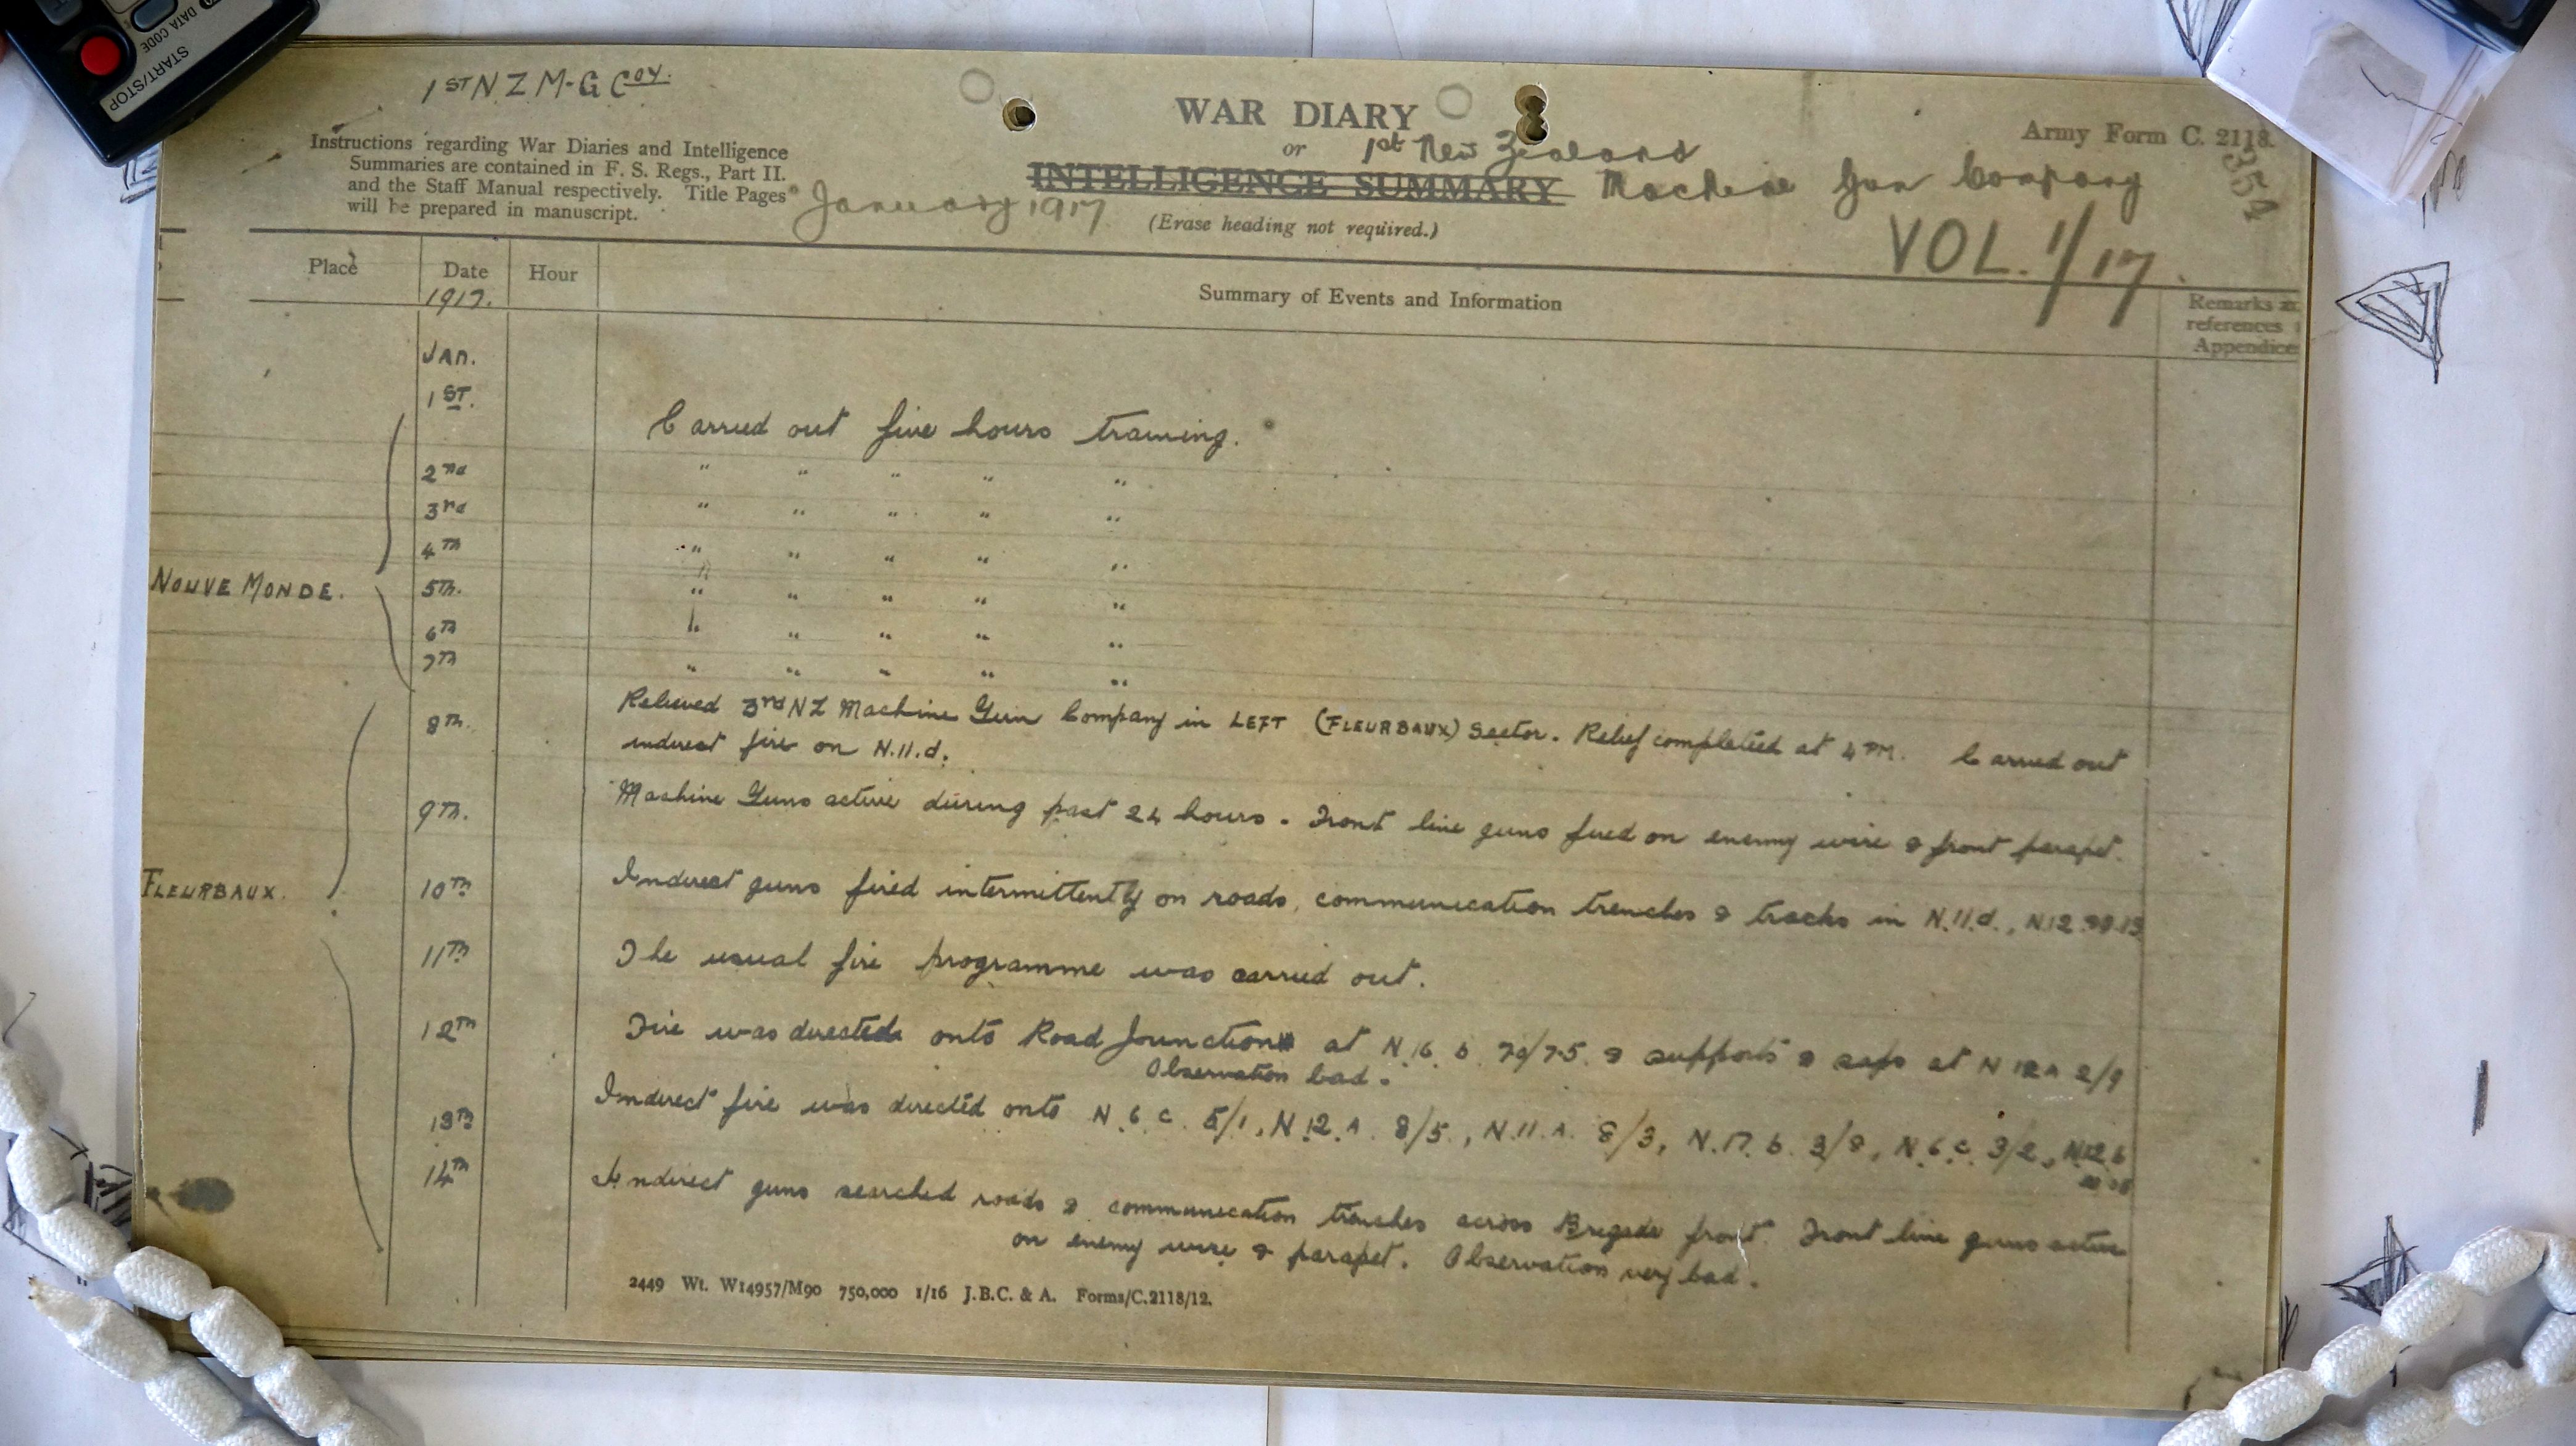 DATA CODE
START/STOP
1ST N Z M-G Coy.
WAR DIARY
or
INTELLIGENCE SUMMARY
1st New Zealand
Machine Gun Company
(Erase heading not required.)
Army Form C. 2118.
354
Instructions regarding War Diaries and Intelligence
Summaries are contained in F. S. Regs., Part II.
and the Staff Manual respectively. Title Pages
will be prepared in manuscript.
January 1917
VOL. 1/17
Place Date Hour Summary of Events and Information Remarks
references
Appendice
1917.
JAN.
1ST. Carried out five hours training.
2nd " " " " "
3rd " " " " "
4TH " " " " "
NOUVE MONDE. 5TH. " " " " "
6TH " " " " "
7TH " " " " "
8TH. Relieved 3rd NZ Machine Gun Company in LEFT (FLEURBAUX) Sector. Relief completed at 4 PM. Carried out
indirect fire on N.11.d.
9TH. Machine Guns active during past 24 hours. Front line guns fired on enemy wire & front parapet.
FLEURBAUX. 10TH Indirect guns fired intermittently on roads, communication trenches & tracks in N.11.d., N.12
11TH The usual fire programme was carried out.
12TH Fire was directed onto Road Junction at N.16 b 79/75 & supports & saps at N 12 A 2/9
Observation bad.
13TH Indirect fire was directed onto N.6.c. 5/1, N.12.A. 8/5., N.11.A. 8/3, N.17.b. 3/8, N.6.c. 3/2, N.12.b
14TH Indirect guns searched roads & communication trenches across Brigade front. Front line guns active
on enemy wire & parapet. Observation very bad.
2449 Wt. W14957/M90 750,000 1/16 J.B.C. & A. Forms/C.2118/12.